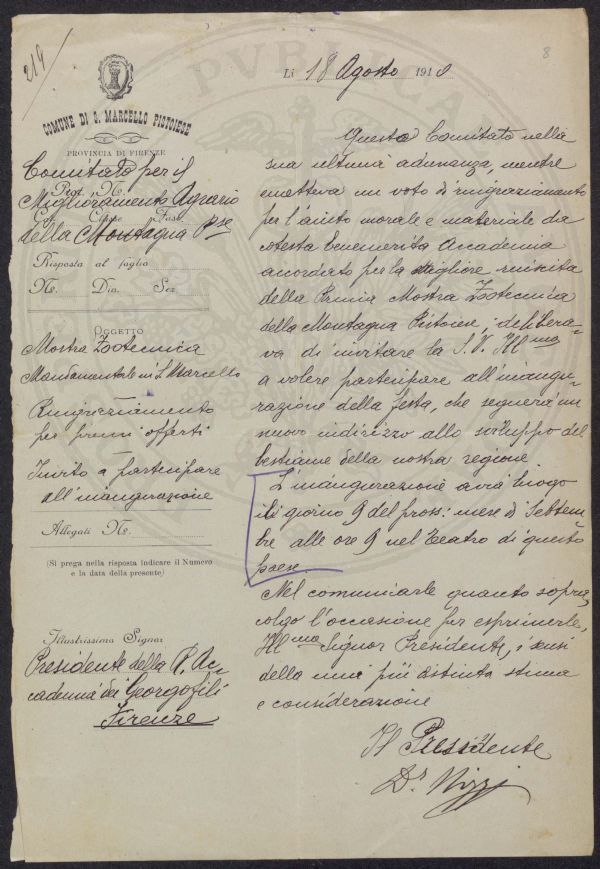 219
8
COMUNE DI S. MARCELLO PISTOIESE
PROVINCIA DI FIRENZE
Comitato per il
Prot. N.
Miglioramento Agrario
Cat. Classe Fasc.
della Montagna Pse
Risposta al foglio
N. Div. Sez.
OGGETTO
Mostra Zootecnica
Mandamentale in S. Marcello
Ringraziamento
per premi offerti
Invito a partecipare
all'inaugurazione
Allegati N.
(Si prega nella risposta indicare il Numero
e la data della presente)
Illustrissimo Signor
Presidente della R. Ac-
cademia dei Georgofili
Firenze
Li 18 Agosto 1910
Questo Comitato nella
sua ultima adunanza, mentre
emetteva un voto di ringraziamento
per l'aiuto morale e materiale da
cotesta benemerita Accademia
accordato per la migliore riuscita
della Prima Mostra Zootecnica
della Montagna Pistoiese, delibera-
va di invitare la S. V. Illma
a volere partecipare all'inaugu-
razione della festa, che segnerà un
nuovo indirizzo allo sviluppo del
bestiame della nostra regione
L'inaugurazione avrà luogo
il giorno 9 del pross: mese di Settem
bre alle ore 9 nel Teatro di questo
paese.
Nel comunicarle quanto sopra,
colgo l'occasione per esprimerle,
Illmo Signor Presidente, i sensi
della mia più distinta stima
e considerazione
Il Presidente
Dr